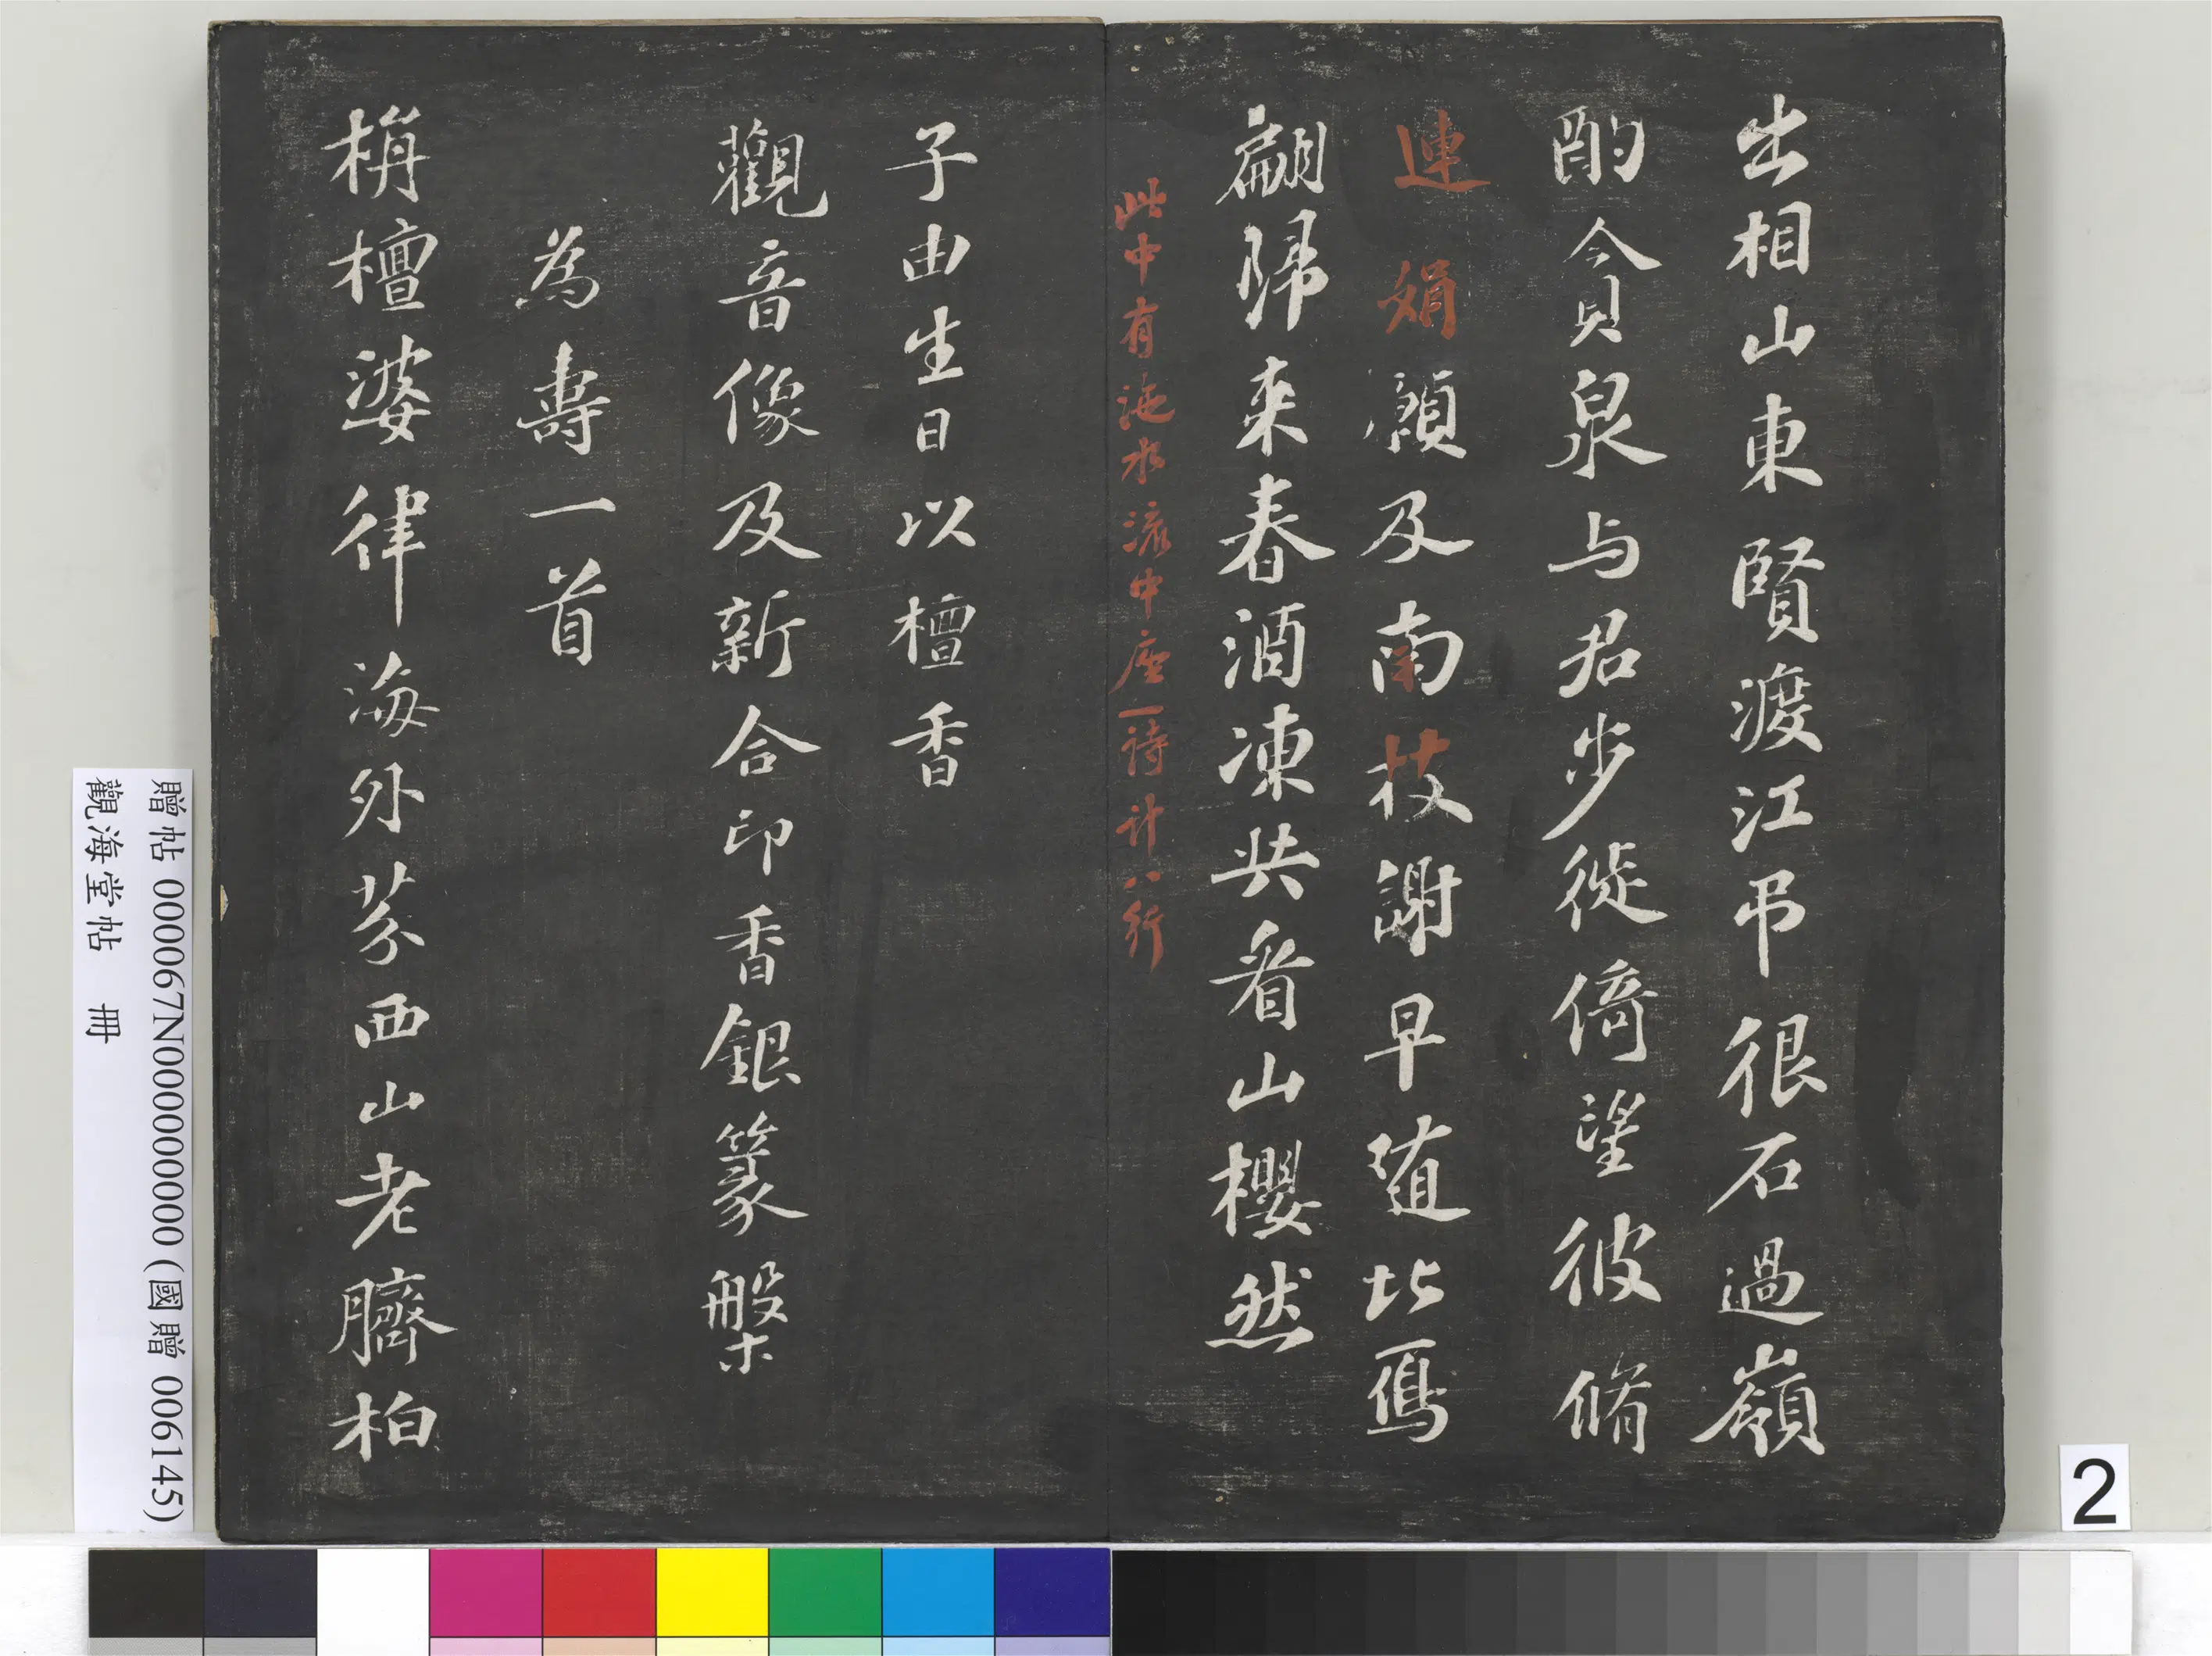 出相山東賢渡江弔很石過嶺
酌貪泉与君步徙倚望彼脩
連娟願及南枝謝早随北鴈
翩歸来春酒凍共看山櫻然
此中有池水流中座一詩計八行
子由生日以檀香
觀音像及新合印香銀篆槃
為壽一首
栴檀婆律海外芬西山老臍柏
贈帖 000067N000000000 (國贈 006145)
觀海堂帖 冊
2